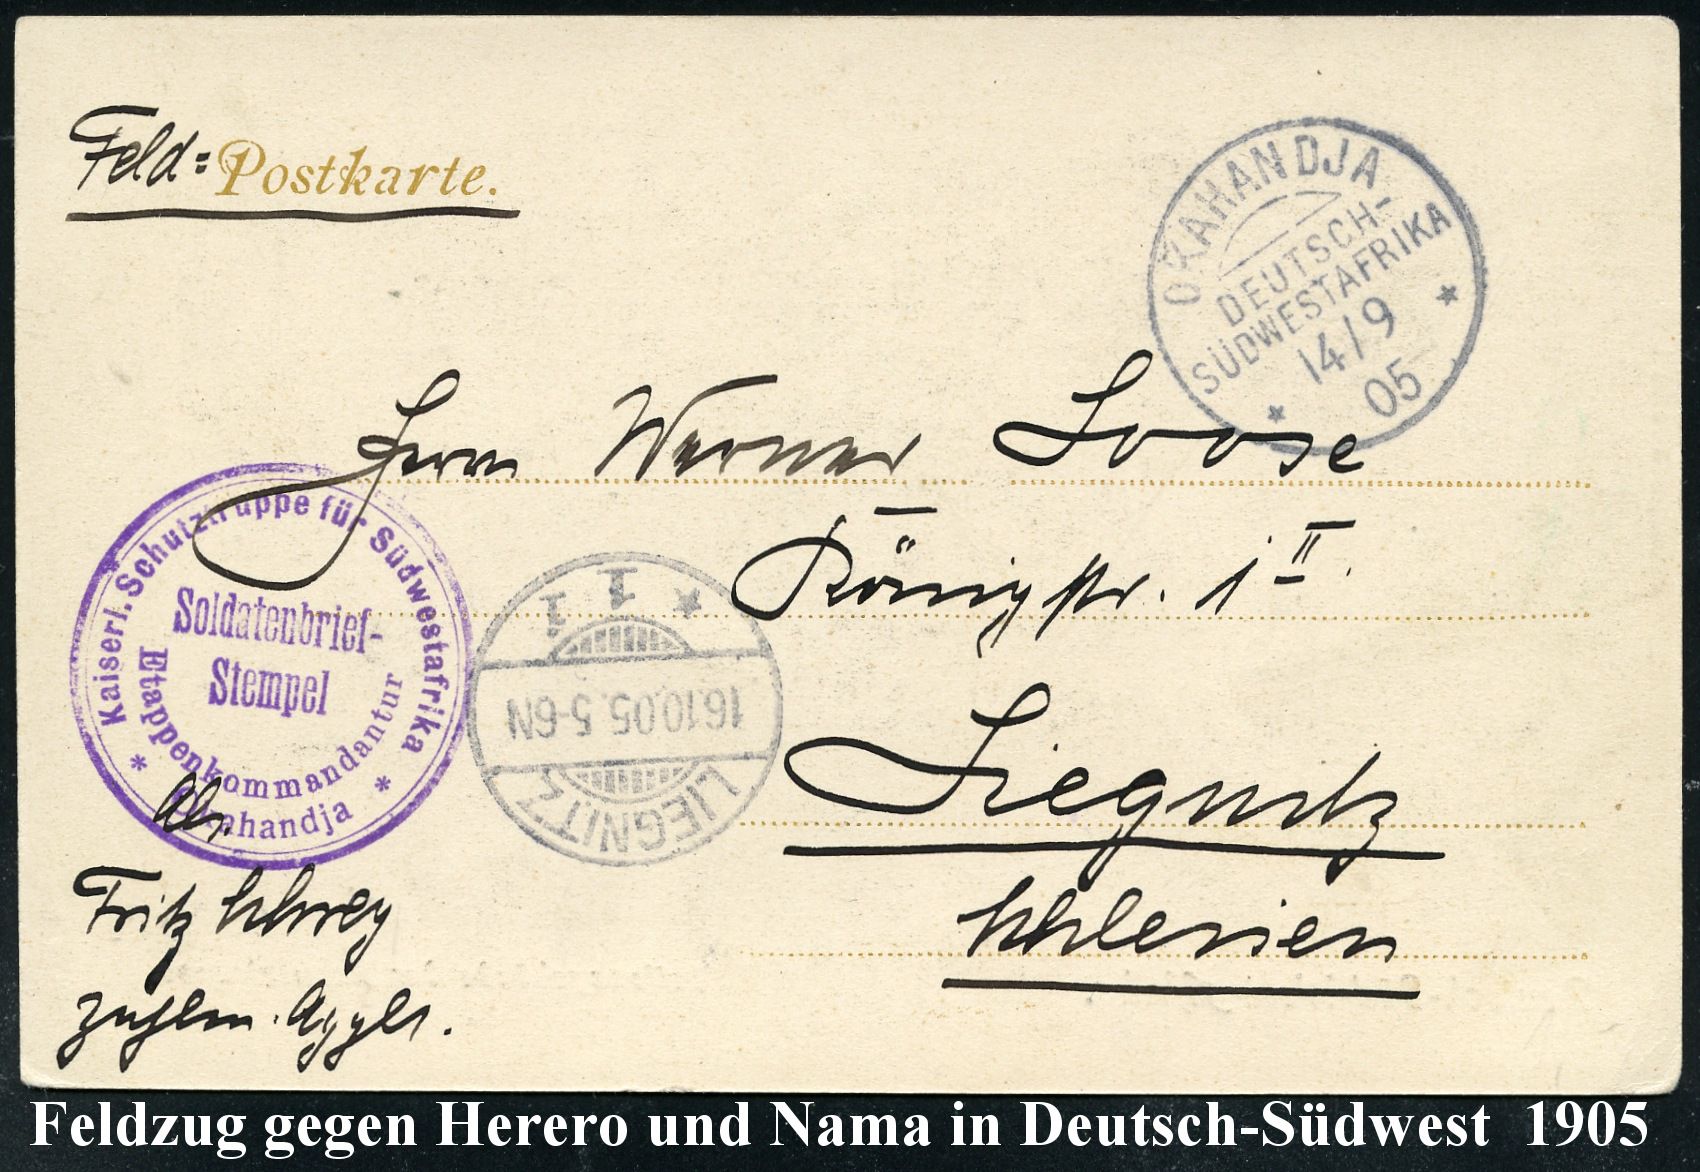 Feld=Postkarte.
OKAHANDJA
DEUTSCH-
SÜDWESTAFRIKA
14/9
05
Herrn Werner Loose
Königstr. 1 II.
Liegnitz
Schlesien
Kaiserl. Schutztruppe für Südwestafrika
Soldatenbrief-
Stempel
Etappenkommandantur
Okahandja
LIEGNITZ
16.10.05. 5-6N
1
Abs.
Fritz
Feldzug gegen Herero und Nama in Deutsch-Südwest 1905